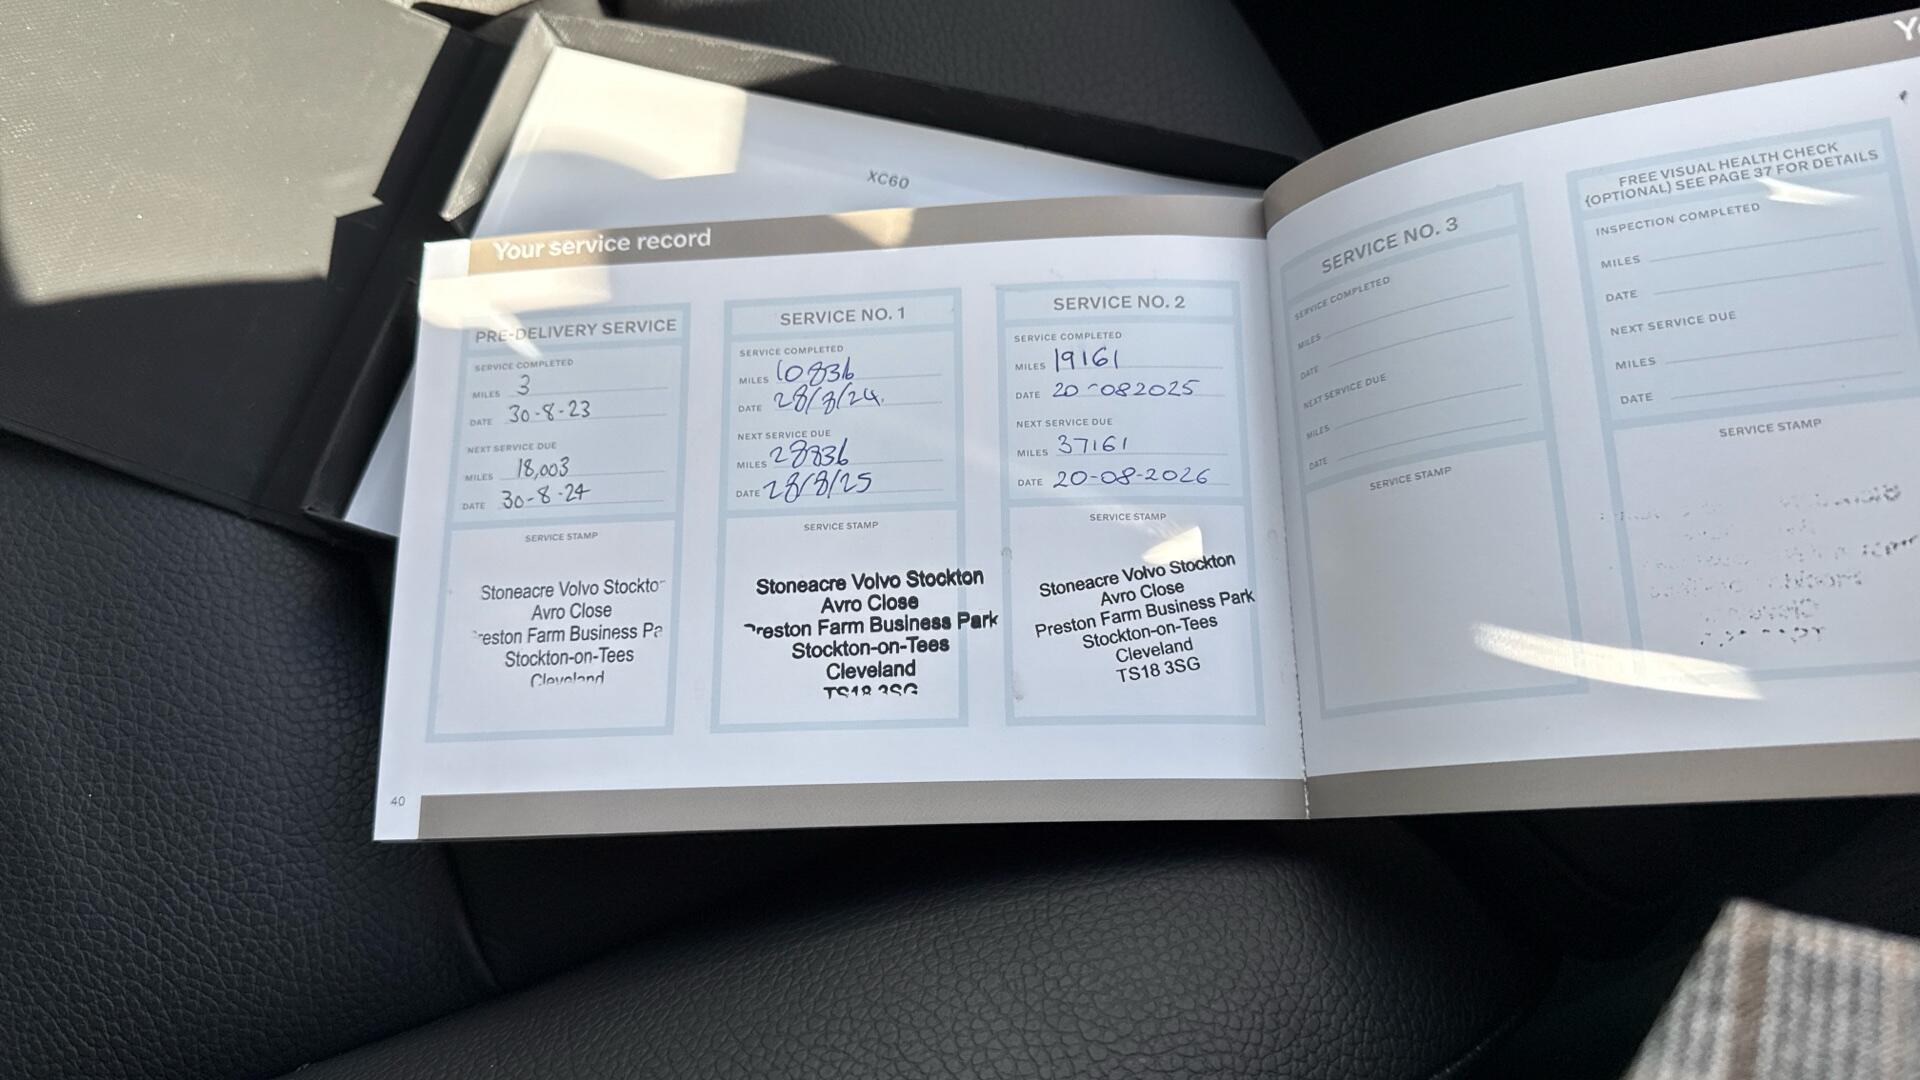 XC60
Your service record
PRE-DELIVERY SERVICE
SERVICE COMPLETED
MILES 3
DATE 30-8-23
NEXT SERVICE DUE
MILES 18,003
DATE 30-8-24
SERVICE STAMP
Stoneacre Volvo Stockto
Avro Close
reston Farm Business Pa
Stockton-on-Tees
Cleveland
SERVICE NO. 1
SERVICE COMPLETED
MILES 10836
DATE 28/8/24.
NEXT SERVICE DUE
MILES 28836
DATE 28/8/25
SERVICE STAMP
Stoneacre Volvo Stockton
Avro Close
Preston Farm Business Park
Stockton-on-Tees
Cleveland
TS18 3SG
SERVICE NO. 2
SERVICE COMPLETED
MILES 19161
DATE 20-082025
NEXT SERVICE DUE
MILES 37161
DATE 20-08-2026
SERVICE STAMP
Stoneacre Volvo Stockton
Avro Close
Preston Farm Business Park
Stockton-on-Tees
Cleveland
TS18 3SG
40
SERVICE NO. 3
SERVICE COMPLETED
MILES
DATE
NEXT SERVICE DUE
MILES
DATE
SERVICE STAMP
FREE VISUAL HEALTH CHECK
(OPTIONAL) SEE PAGE 37 FOR DETAILS
INSPECTION COMPLETED
MILES
DATE
NEXT SERVICE DUE
MILES
DATE
SERVICE STAMP